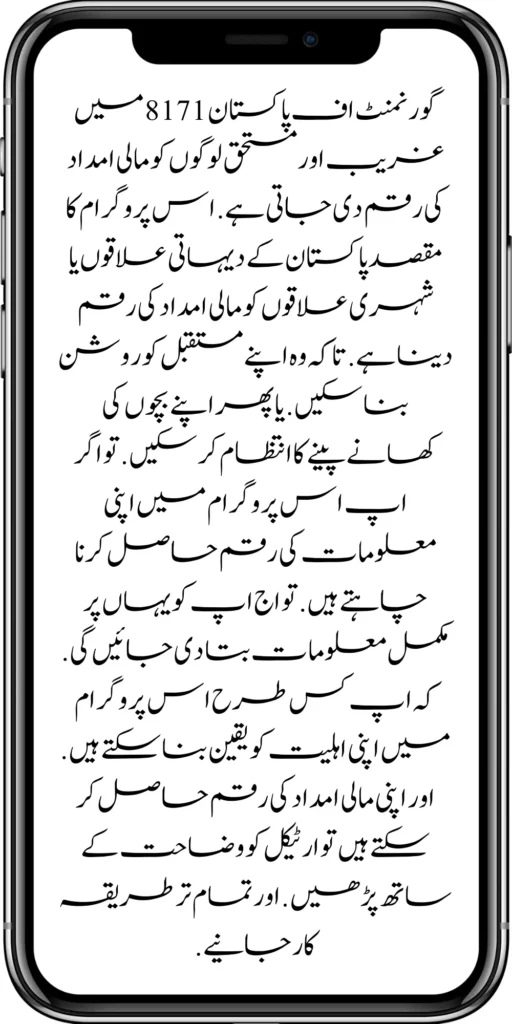 گورنمنٹ اف پاکستان 8171 میں
غریب اور مستحق لوگوں کو مالی امداد
کی رقم دی جاتی ہے. اس پروگرام کا
مقصد پاکستان کے دیہاتی علاقوں یا
شہری علاقوں کو مالی امداد کی رقم
دینا ہے. تاکہ وہ اپنے مستقبل کو روشن
بنا سکیں. یا پھر اپنے بچوں کی
کھانے پینے کا انتظام کر سکیں. تو اگر
اپ اس پروگرام میں اپنی
معلومات کی رقم حاصل کرنا
چاہتے ہیں. تو اج اپ کو یہاں پر
مکمل معلومات بتا دی جائیں گی.
کہ اپ کس طرح اس پروگرام
میں اپنی اہلیت کو یقین بنا سکتے ہیں.
اور اپنی مالی امداد کی رقم حاصل کر
سکتے ہیں تو ارٹیکل کو وضاحت کے
ساتھ پڑھیں. اور تمام تر طریقہ
کار جانیے.